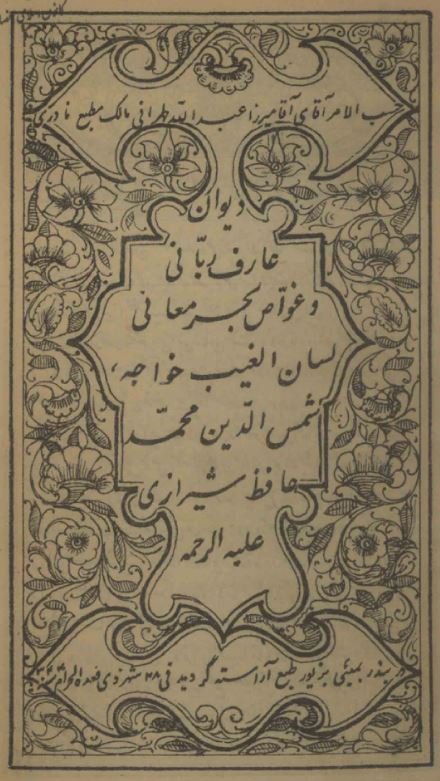 حسب الامر آقای آقا میرزا عبد اللّه طهرانی مالک مطبع نادری
دیوان
عارف ربّانی
و غوّاص بحر معانی
لسان الغیب خواجه
شمس الدّین محمّد
حافظ شیرازی
علیه الرحمه
در بندر بمبئی بزیور طبع آراسته گردید فی ۲۸ شهر ذی قعدة الحرام